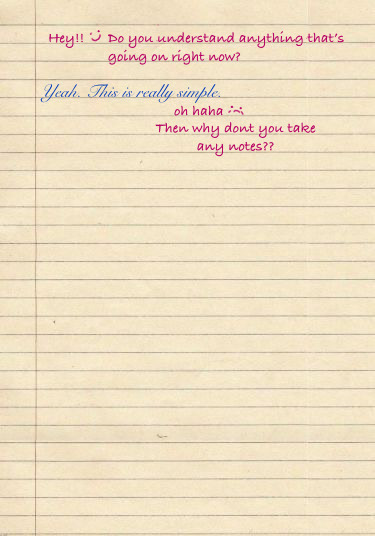 Hey!! :) Do you understand anything that's
going on right now?
Yeah. This is really simple.
oh haha :(
Then why dont you take
any notes??